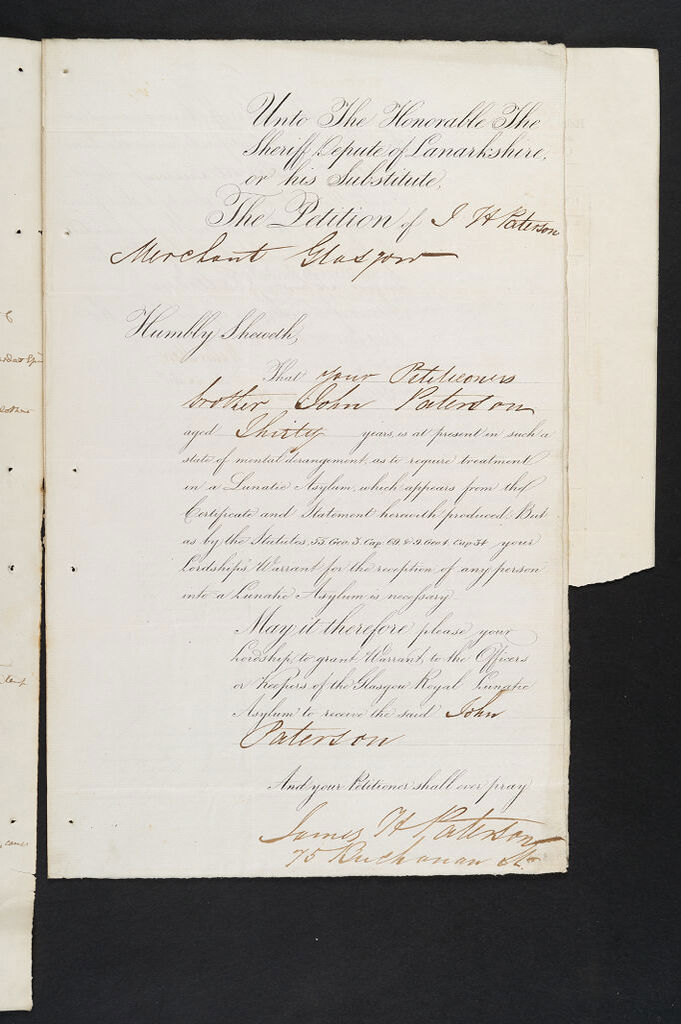 Unto The Honorable The
Sheriff Depute of Lanarkshire,
or his Substitute,
The Petition of J H Paterson
Merchant Glasgow
Humbly Sheweth,
That your Petitioners
brother John Paterson
aged Thirty years, is at present in such a
state of mental derangement, as to require treatment
in a Lunatic Asylum, which appears from the
Certificate and Statement herewith produced. But
as by the Statutes, 55. Geo. 3. Cap. 69. & 9. Geo. 4. Cap. 34 your
Lordship's Warrant for the reception of any person
into a Lunatic Asylum is necessary
May it therefore please your
Lordship, to grant Warrant, to the Officers
or Keepers of the Glasgow Royal Lunatic
Asylum to receive the said John
Paterson
And your Petitioner shall ever pray
James H Paterson
75 Buchanan St